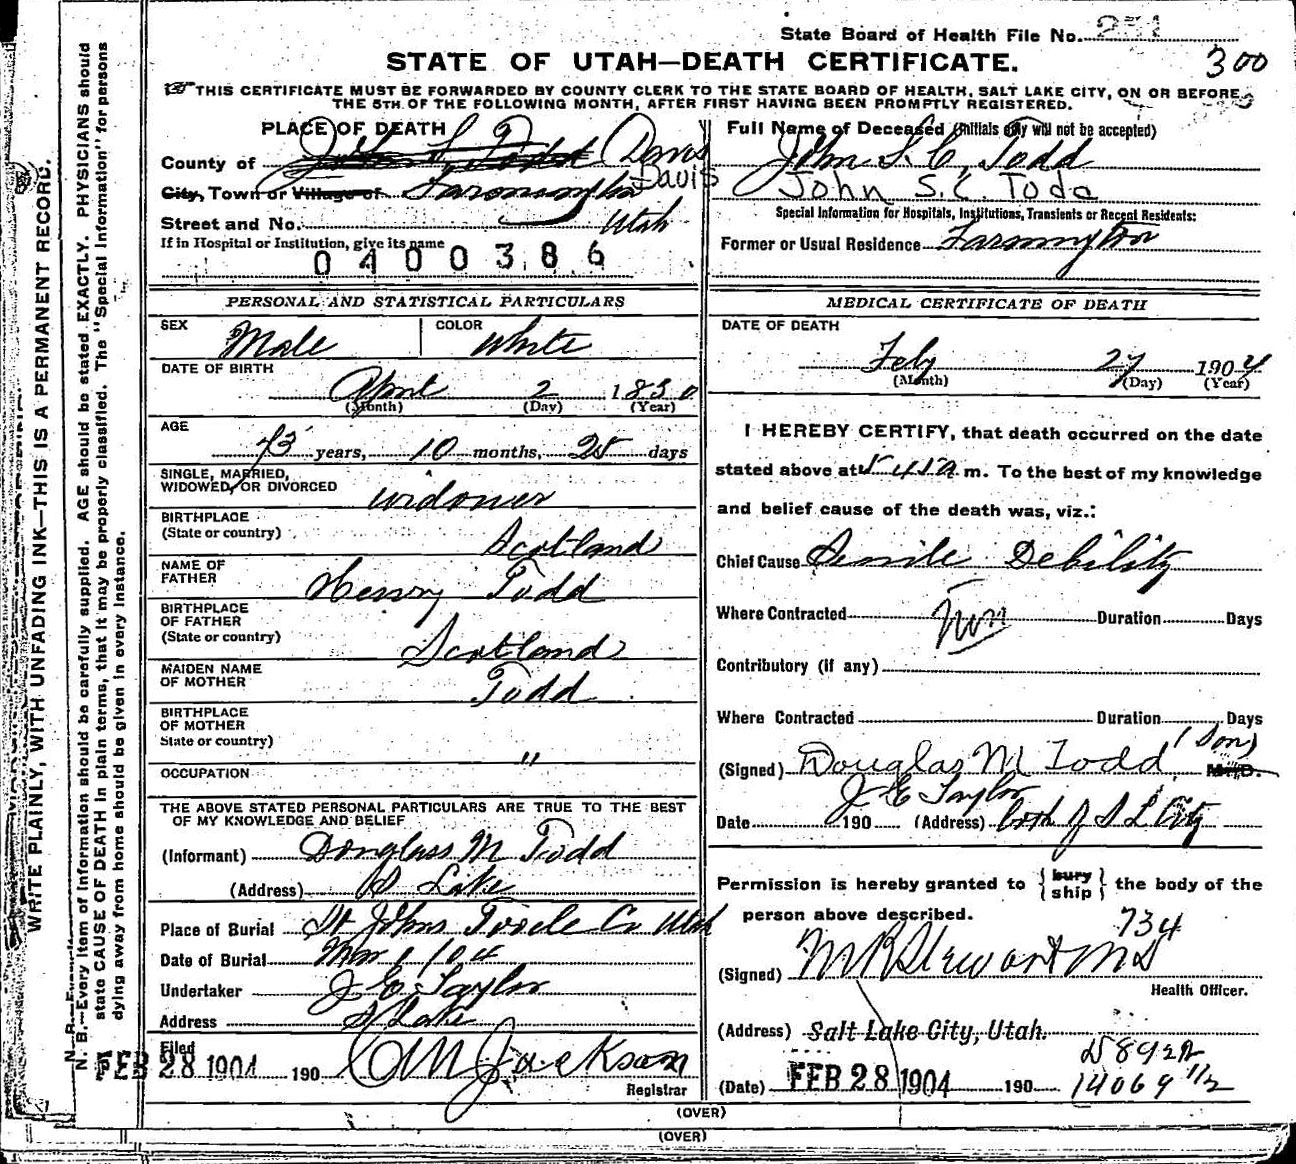 State Board of Health File No. 271
STATE OF UTAH—DEATH CERTIFICATE.
300
THIS CERTIFICATE MUST BE FORWARDED BY COUNTY CLERK TO THE STATE BOARD OF HEALTH, SALT LAKE CITY, ON OR BEFORE
THE 5TH OF THE FOLLOWING MONTH, AFTER FIRST HAVING BEEN PROMPTLY REGISTERED.
PLACE OF DEATH
County of John S Todd Davis
City, Town or Village of Farmington Davis
Street and No. Utah
If in Hospital or Institution, give its name
0400386
Full Name of Deceased (Initials only will not be accepted)
John S. C. Todd
John S. C. Todd
Special Information for Hospitals, Institutions, Transients or Recent Residents:
Former or Usual Residence Farmington
PERSONAL AND STATISTICAL PARTICULARS
SEX Male COLOR White
DATE OF BIRTH
April 2 1830
(Month) (Day) (Year)
AGE
73 years, 10 months, 25 days
SINGLE, MARRIED,
WIDOWED, OR DIVORCED widower
BIRTHPLACE
(State or country) Scotland
NAME OF
FATHER Henry Todd
BIRTHPLACE
OF FATHER
(State or country) Scotland
MAIDEN NAME
OF MOTHER Todd
BIRTHPLACE
OF MOTHER
State or country) "
OCCUPATION
THE ABOVE STATED PERSONAL PARTICULARS ARE TRUE TO THE BEST
OF MY KNOWLEDGE AND BELIEF
(Informant) Douglass M Todd
(Address) S Lake
Place of Burial St Johns Tooele Co Utah
Date of Burial Mar 1/04
Undertaker J E Taylor
Address S Lake
Filed
FEB 28 1904 190 Jackson
Registrar
MEDICAL CERTIFICATE OF DEATH
DATE OF DEATH
Feby 27 1904
(Month) (Day) (Year)
I HEREBY CERTIFY, that death occurred on the date
stated above at m. To the best of my knowledge
and belief cause of the death was, viz.:
Chief Cause Senile Debility
Where Contracted Duration Days
Contributory (if any)
Where Contracted Duration Days
(Signed) Douglas M Todd (Son) M.D.
J E Taylor
Date 190 (Address) both of S L City
Permission is hereby granted to { bury ship } the body of the
person above described. 734
(Signed) M R Stewart MD
Health Officer.
(Address) Salt Lake City, Utah.
(Date) FEB 28 1904 190
14069 1/2
(OVER)
(OVER)
WRITE PLAINLY, WITH UNFADING INK—THIS IS A PERMANENT RECORD.
N. B.—Every item of information should be carefully supplied. AGE should be stated EXACTLY. PHYSICIANS should
state CAUSE OF DEATH in plain terms, that it may be properly classified. The "Special Information" for persons
dying away from home should be given in every instance.